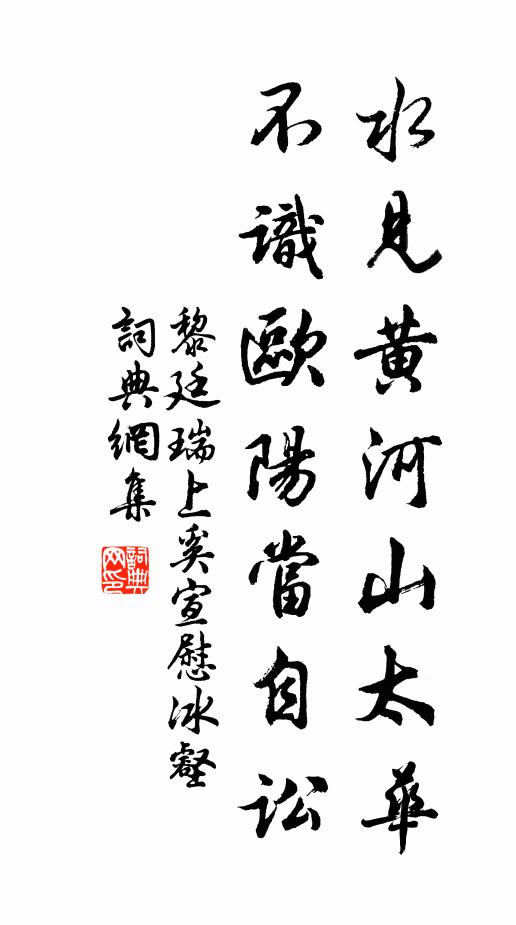 水見黃河山太華
不識歐陽當自訟
黎廷瑞上奚宣慰冰壑
詞典網集
詞典網印